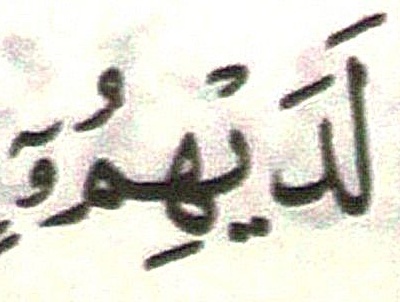 لَدَيْهِمُۥٓ